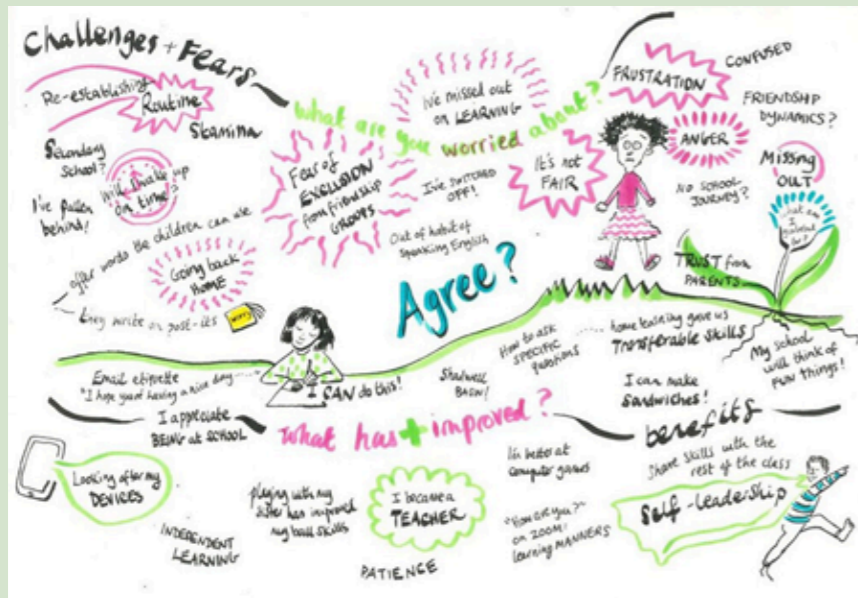 Challenges + Fears
Re-establishing
Routine
Stamina
Secondary
School?
I've fallen
behind!
Will I wake up
on time?
offer words the children can use
Going back
HOME
they write on post-its
worry
What are you worried about?
I've missed out
on LEARNING
Fear of
EXCLUSION
from friendship
GROUPS
I've SWITCHED
OFF!
Out of habit of
Speaking English
It's not
FAIR
FRUSTRATION
CONFUSED
ANGER
FRIENDSHIP
DYNAMICS?
Missing
OUT
NO SCHOOL
JOURNEY?
What am
I
TRUST from
PARENTS
Agree?
Email etiquette
"I hope you are having a nice day"
I CAN do this!
Shadwell
BASIN!
How to ask
SPECIFIC
questions
home learning gave us
Transferable Skills
I can make
SANDWICHES!
My school
will think of
FUN things!
I appreciate
BEING at SCHOOL
What has + improved?
benefits
Looking after my
DEVICES
INDEPENDENT
LEARNING
playing with my
sister has improved
my ball skills
I became a
TEACHER
PATIENCE
I'm better at
computer games
"How are you?"
on ZOOM!
learning MANNERS
Share skills with the
rest of the class
Self-leadership